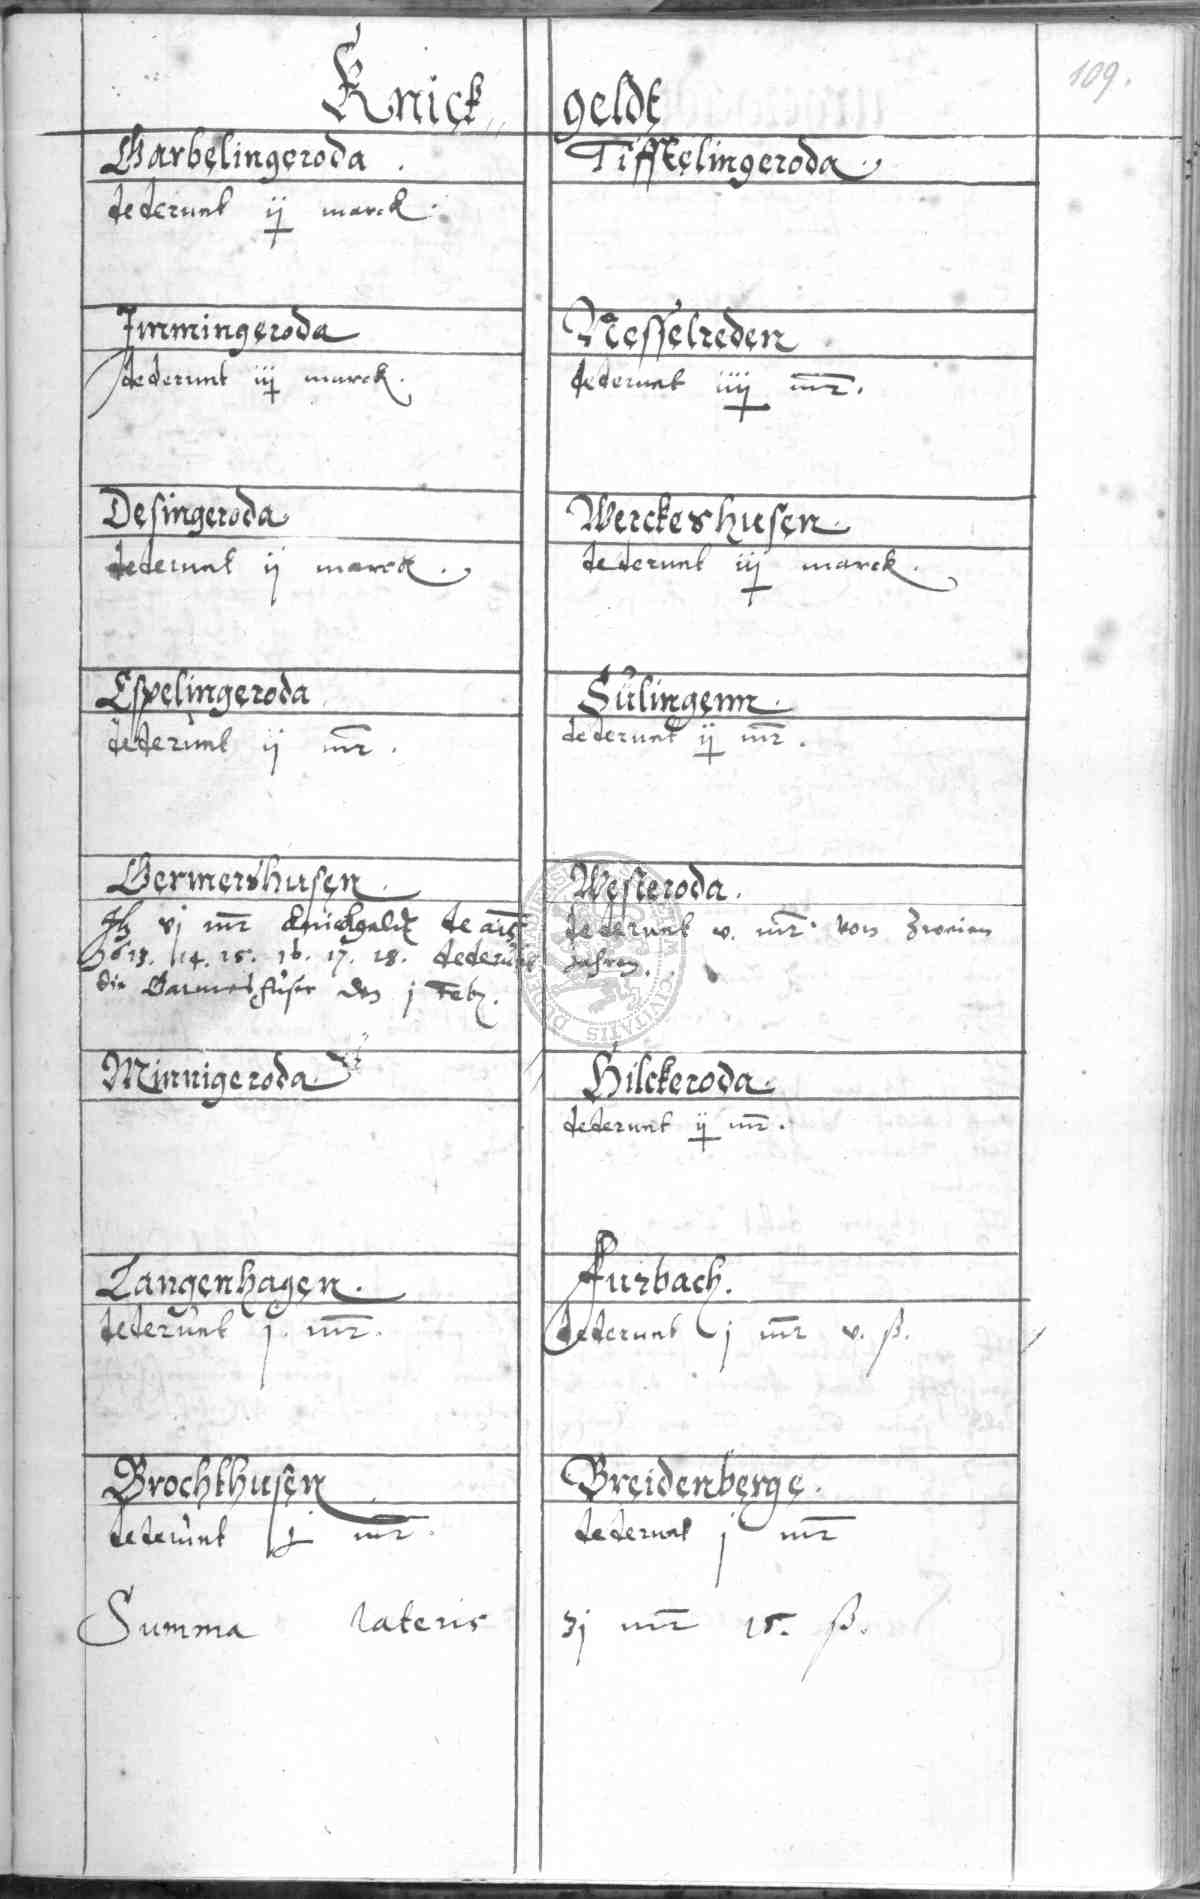 109.
Knick geldt
Garbelingeroda.
dederunt ij marck.
Immingeroda
dederunt iij marck.
Desingeroda
dederunt ij marck.
Espelingeroda
dederunt ij mr.
Germershusen
vj mr Knickgeldt de anno
1613. 14. 15. 16. 17. 18. dederunt
die Garmershuser den j Feb.
Minnigeroda
Langenhagen.
dederunt j. mr.
Brochthusen
dederunt j mr.
Tifftelingeroda.
Nesselreden
dederunt iiij mr.
Werckeshusen.
dederunt iij marck.
Sulingenn.
dederunt ij mr.
Westeroda.
dederunt v. mr. von zweien
Jahren.
Hilckeroda.
dederunt ij mr.
Furbach.
dederunt j mr v. ß.
Breidenberge.
dederunt j mr
Summa lateris 3j mr 15. ß.
CIVITATIS